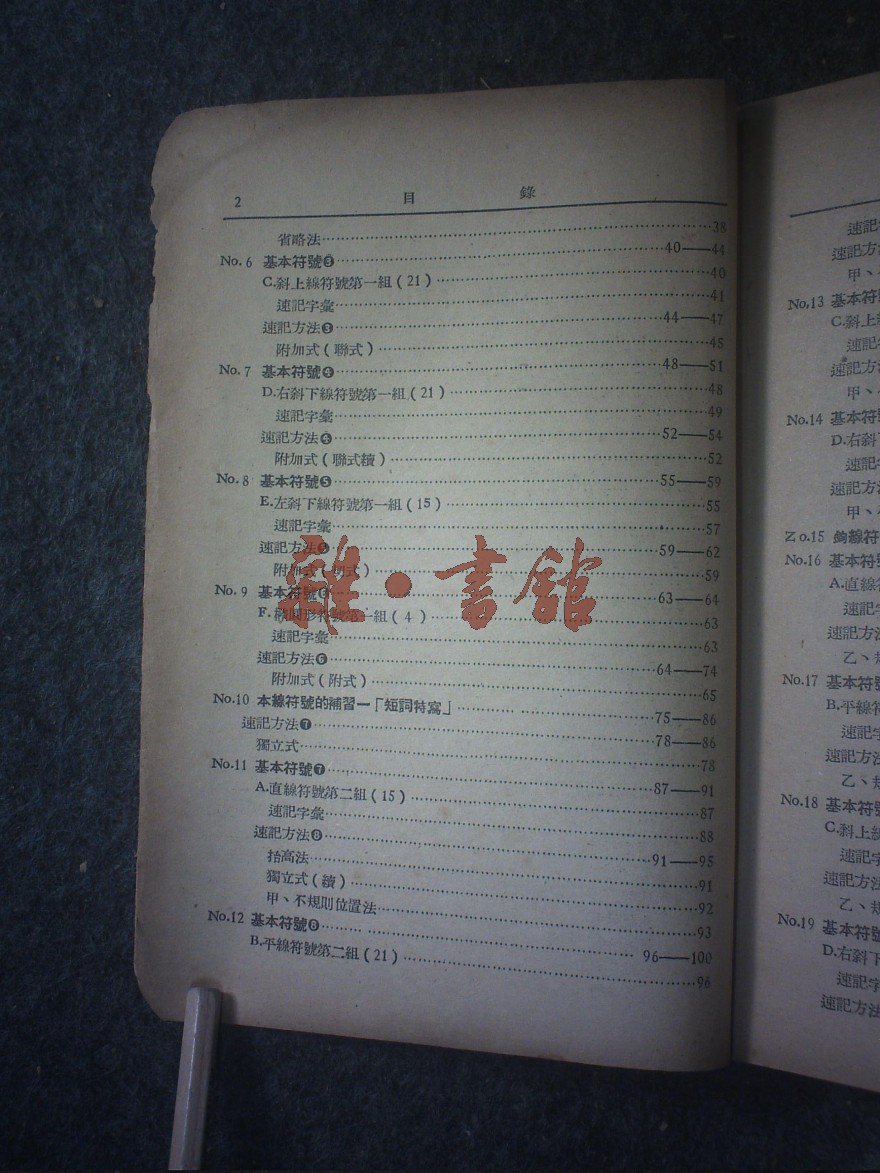 2 目 錄
省略法……38
No. 6 基本符號❸……40——44
C.斜上線符號第一組(21)……40
速記字彙……41
速記方法❸……44——47
附加式(聯式)……45
No. 7 基本符號❹……48——51
D.右斜下線符號第一組(21)……48
速記字彙……49
速記方法❹……52——54
附加式(聯式續)……52
No. 8 基本符號❺……55——59
E.左斜下線符號第一組(15)……55
速記字彙……57
速記方法❺……59——62
附加式(式)……59
No. 9 基本符號❻……63——64
F.橢圓形符號第一組(4)……63
速記字彙……63
速記方法❻……64——74
附加式(附式)……65
No.10 本線符號的補習—「短詞特寫」……75——86
速記方法❼……78——86
獨立式……78
No.11 基本符號❼……87——91
A.直線符號第二組(15)……87
速記字彙……88
速記方法❽……91——95
抬高法……91
獨立式(續)……92
甲、不規則位置法……93
No.12 基本符號❽……96——100
B.平線符號第二組(21)……96
雜·書館
速記
速記方
甲、
No.13 基本符
C.斜上
速記
速記方
甲、
No.14 基本符
D.右斜
速記
速記方
甲、
No.15 鉤線符
No.16 基本符
A.直線
速記
速記方
乙、規
No.17 基本符
B.平線符
速記
速記方
乙、規
No.18 基本符
C.斜上
速記
速記方
乙、規
No.19 基本符
D.右斜下
速記
速記方